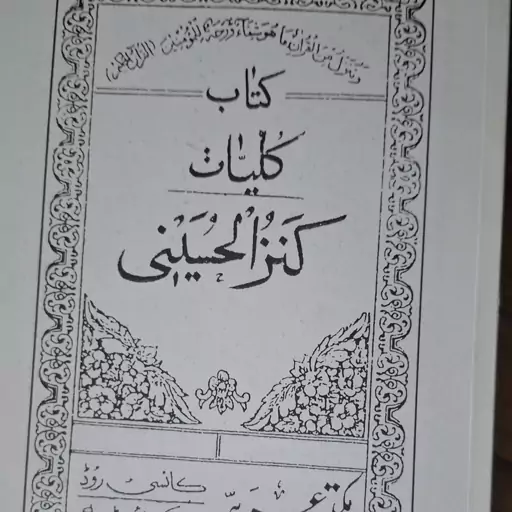 وننزل من القرآن ما هو شفاء ورحمة للمؤمنين
کتاب
کلیات
کنز الحسینی
کانسی روڈ